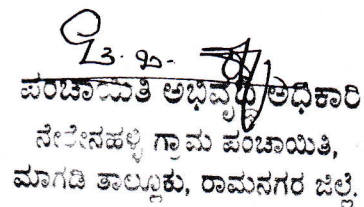 ಪಂಚಾಯಿತಿ ಅಭಿವೃದ್ಧಿ ಅಧಿಕಾರಿ
ನೇತೇನಹಳ್ಳಿ ಗ್ರಾಮ ಪಂಚಾಯಿತಿ,
ಮಾಗಡಿ ತಾಲ್ಲೂಕು, ರಾಮನಗರ ಜಿಲ್ಲೆ.